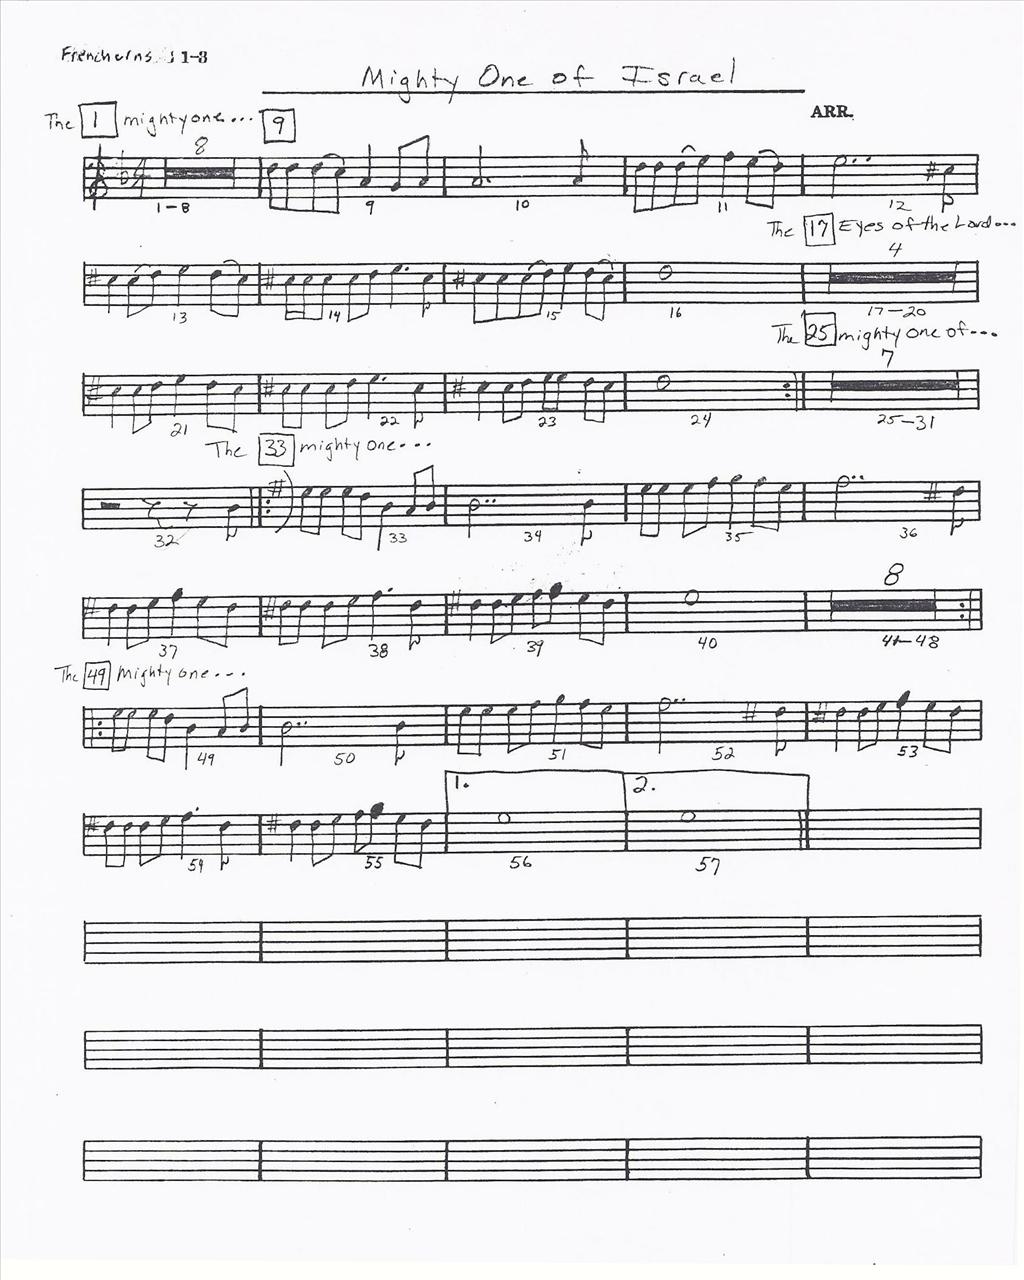 Frenchorns 1-3
Mighty One of Israel
ARR.
The 1 mightyone... 9
8
1-8 9 10 11 12
The 17 Eyes of the Lord...
4
13 14 15 16 17-20
The 25 mighty one of...
7
21 22 23 24 25-31
The 33 mighty one...
32 33 34 35 36
8
37 38 39 40 41-48
The 49 Mighty one...
49 50 51 52 53
1. 2.
54 55 56 57